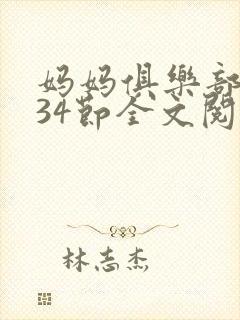 妈妈俱樂部
34節全文閱
林志杰